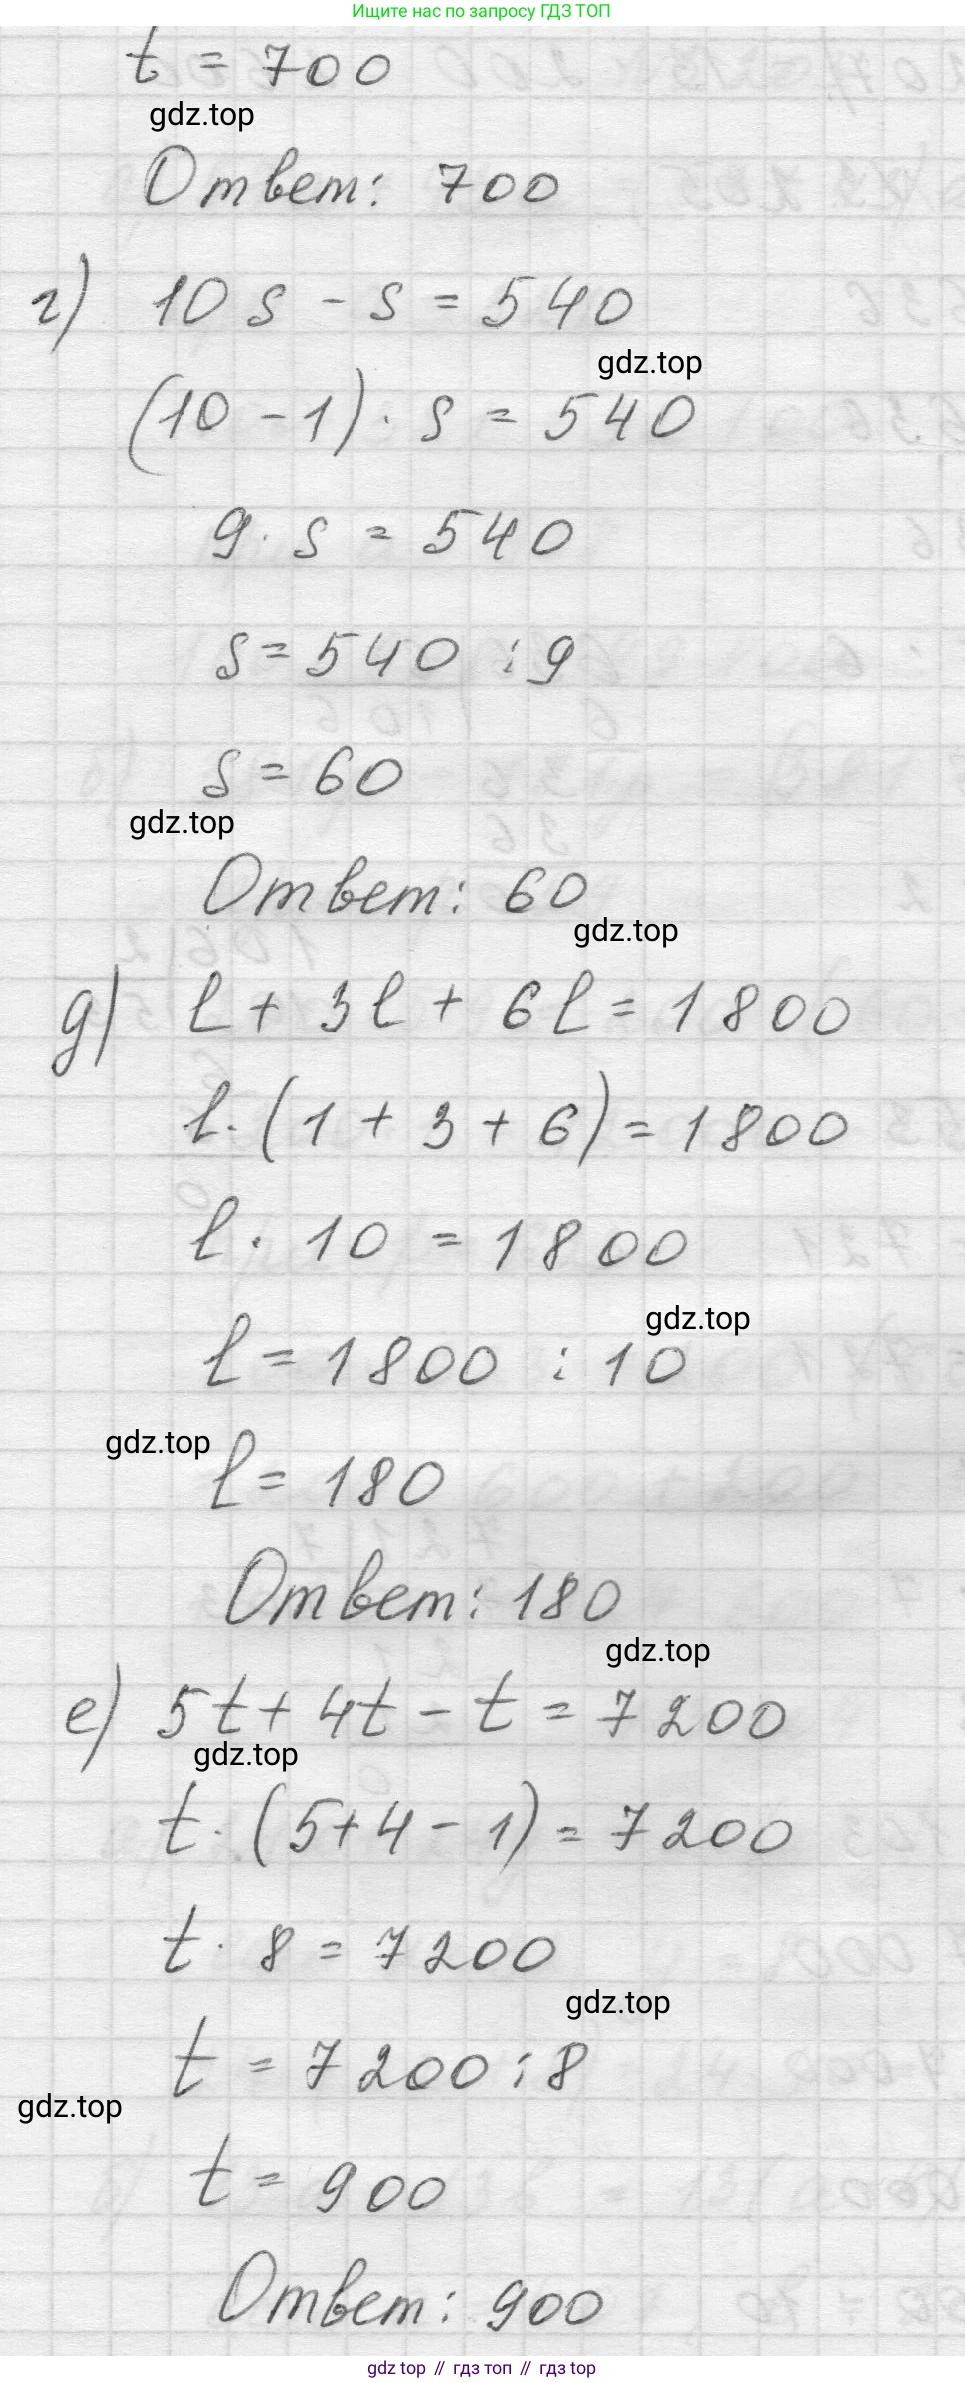 Ищите нас по запросу ГДЗ ТОП
t = 700
gdz.top
Ответ: 700
г) 10s - s = 540
gdz.top
(10 - 1) · s = 540
9 · s = 540
s = 540 : 9
s = 60
gdz.top
Ответ: 60
gdz.top
д) l + 3l + 6l = 1800
l · (1 + 3 + 6) = 1800
l · 10 = 1800
gdz.top
l = 1800 : 10
gdz.top
l = 180
Ответ: 180
gdz.top
е) 5t + 4t - t = 7200
gdz.top
t · (5 + 4 - 1) = 7200
t · 8 = 7200
gdz.top
t = 7200 : 8
gdz.top
t = 900
Ответ: 900
gdz top // гдз топ // гдз top